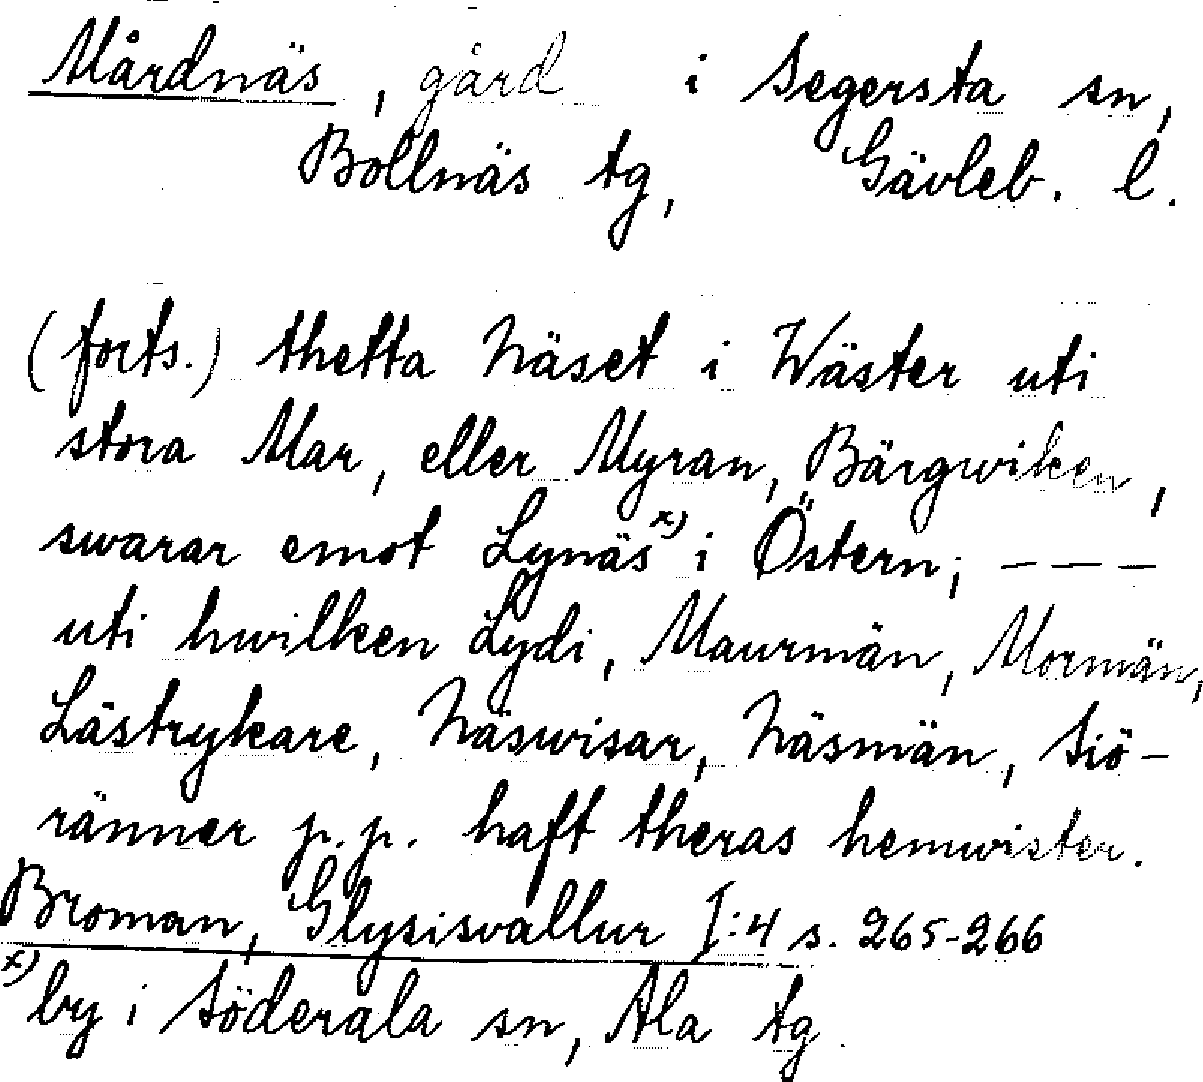 Mårdnäs, gård i Segersta sn,
Bollnäs tg, Gävleb. l.
(forts.) thetta Näset i Wäster uti
stora Mar, eller Myran, Bärgwiken,
swarar emot Lynäs x) i Östern; – – –
uti hwilken Lydi, Maurmän, Mormän,
Lästrykare, Näswisar, Näsmän, Siö-
ränner p.p. haft theras hemwister.
Broman, Glysisvallur I:4 s. 265-266
x) by i Söderala sn, Ala tg.